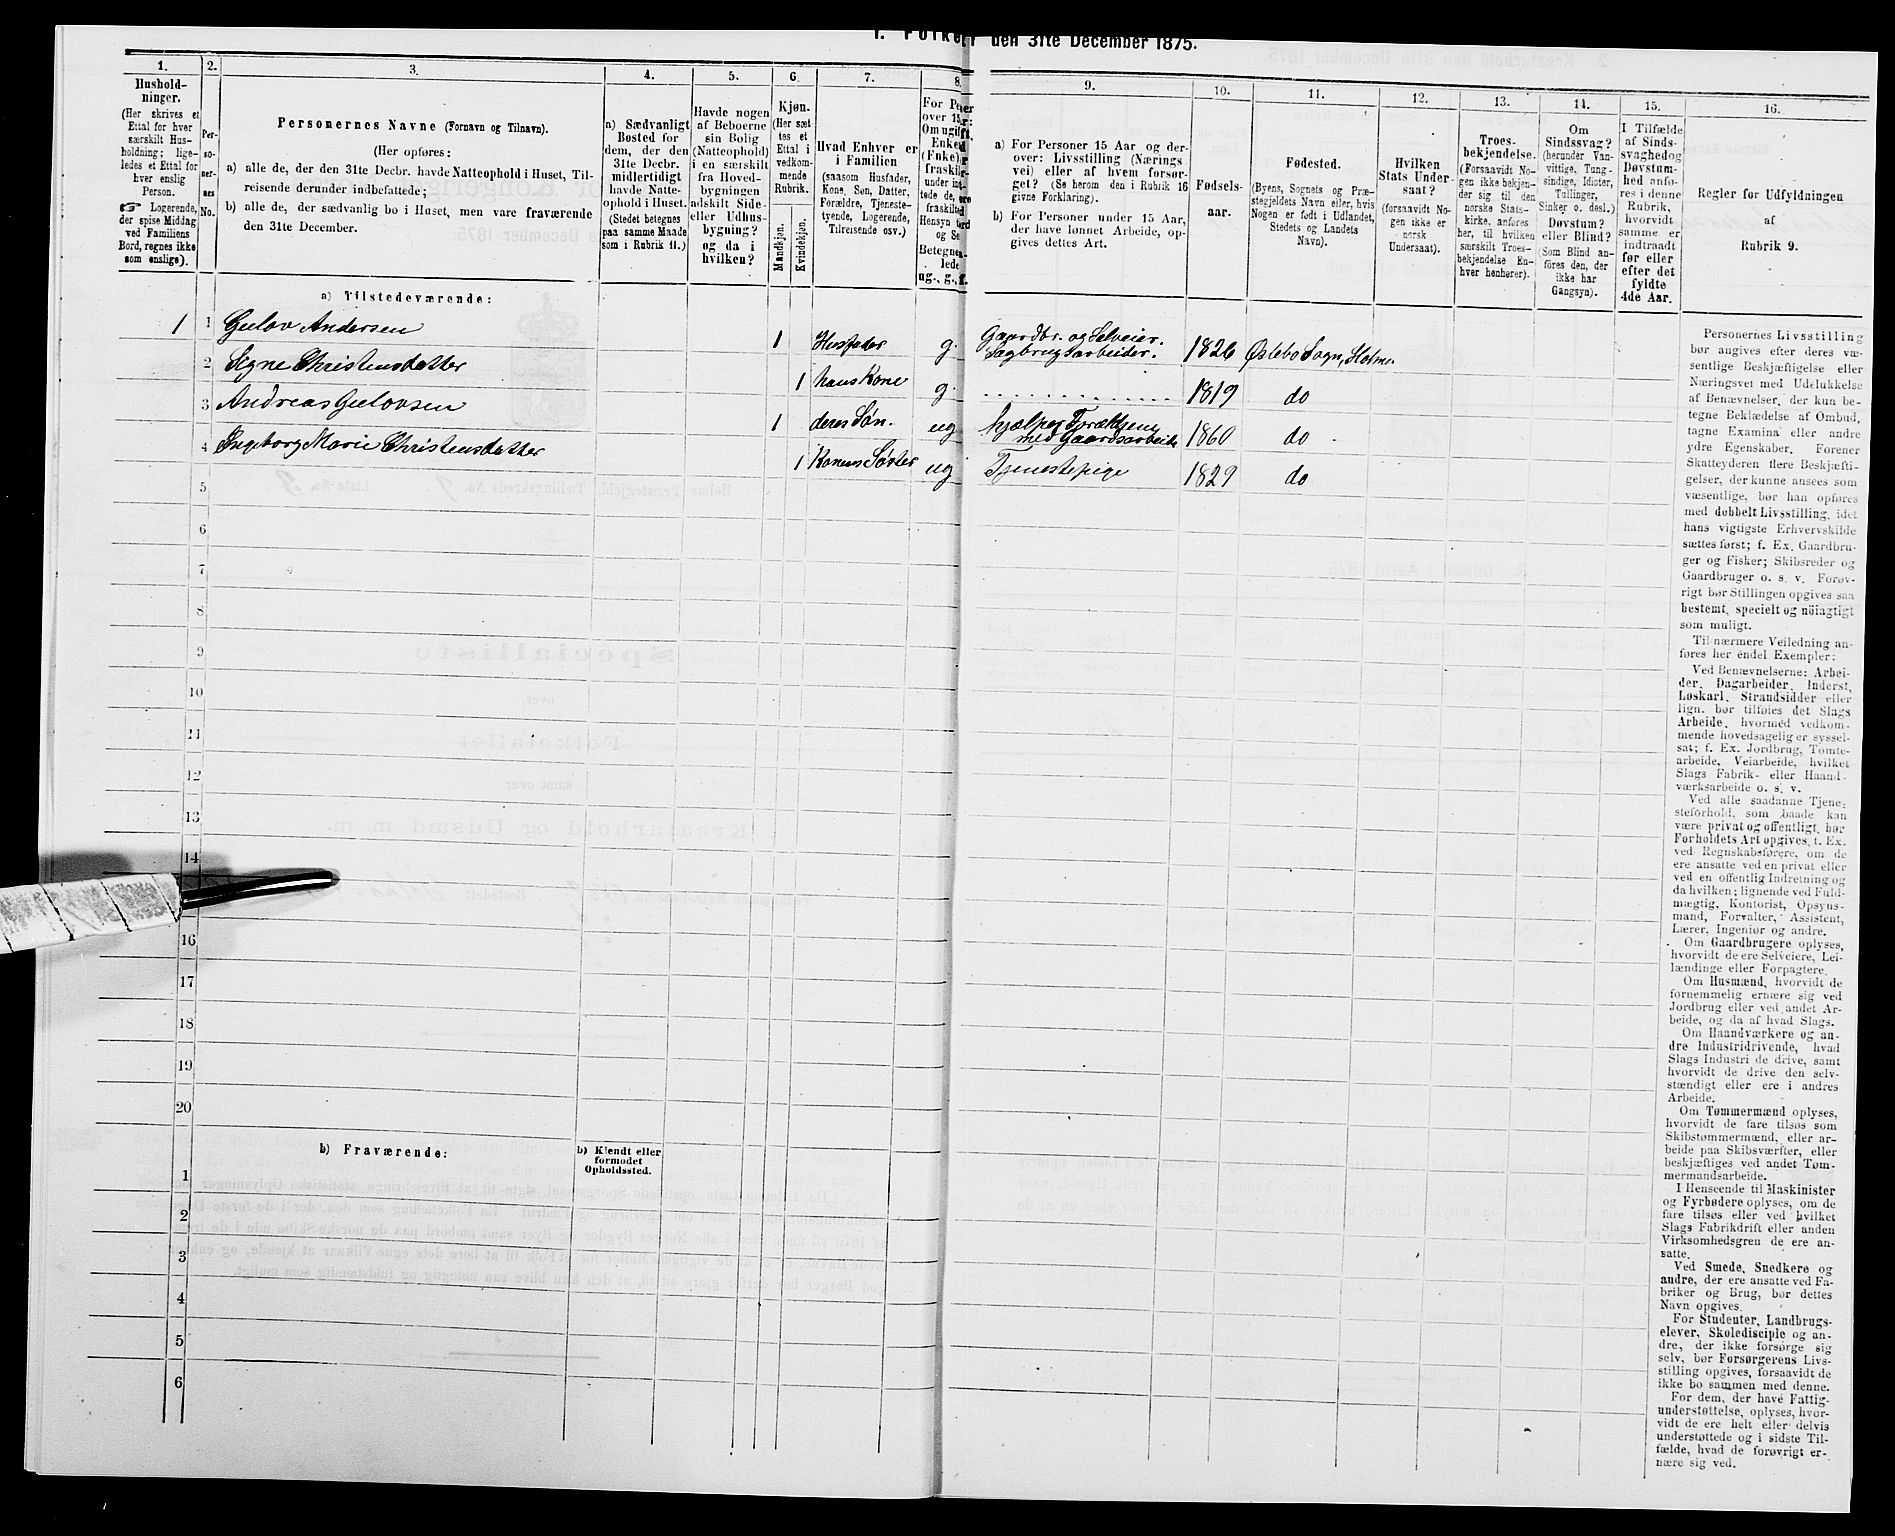 den 31te December 1875.
1.
Hushold-
ninger.
(Her skrives et
Ettal for hver
særskilt Hus-
holdning; lige-
ledes et Ettal for
hver enslig
Person.
☞ Logerende,
der spise Middag
ved Familiens
Bord, regnes ikke
som enslige).
2.
Per-
so-
ner-
nes
No.
3.
Personernes Navne (Fornavn og Tilnavn).
(Her opføres:
a) alle de, der den 31te Decbr. havde Natteophold i Huset, Til-
reisende derunder indbefattede;
b) alle de, der sædvanlig bo i Huset, men vare fraværende
den 31te December.
4.
a) Sædvanligt
Bosted for
dem, der den
31te Decbr.
midlertidigt
havde Natte-
ophold i Huset.
(Stedet betegnes
paa samme Maade
som i Rubrik 11.)
5.
Havde nogen
af Beboerne
sin Bolig
(Natteophold)
i en særskilt
fra Hoved-
bygningen
adskilt Side-
eller Udhus-
bygning?
og da i
hvilken?
6.
Kjøn.
(Her sæt-
tes et
Ettal i
vedkom-
mende
Rubrik.
Mandkjøn.
Kvindekjøn.
7.
Hvad Enhver er
i Familien
(saasom Husfader,
Kone, Søn, Datter,
Forældre, Tjeneste-
tyende, Logerende,
Tilreisende osv.)
8.
9.
a) For Personer 15 Aar og der-
over: Livsstilling (Nærings
vei) eller af hvem forsør-
get? (Se herom den i Rubrik 16
givne Forklaring).
b) For Personer under 15 Aar,
der have lønnet Arbeide, op-
gives dettes Art.
10.
Fødsels-
aar.
11.
Fødested.
(Byens, Sognets og Præ-
stegjeldets Navn eller, hvis
Nogen er født i Udlandet,
Stedets og Landets
Navn).
12.
Hvilken
Stats Under-
saat?
(forsaavidt No-
gen ikke er
norsk
Undersaat).
13.
Troes-
bekjendelse.
(Forsaavidt No-
gen ikke bekjen-
der sig til den
norske Stats-
kirke, anføres
her, til hvilken
særskilt Troes-
bekjendelse En-
hver henhører).
14.
Om
Sindssvag?
(herunder Van-
vittige, Tung-
sindige, Idioter,
Tullinger,
Sinker o. desl.)
Døvstum?
eller Blind?
(Som Blind an-
føres den, der
ikke har
Gangsyn).
15.
I Tilfælde
af Sinds-
svaghed og
Døvstum-
hed anfø-
res i denne
Rubrik,
hvorvidt
samme er
indtraadt
før eller
efter det
fyldte
4de Aar.
16.
Regler for Udfyldningen
af
Rubrik 9.
a) Tilstedeværende:
1 1 Gulov Andersen 1 Husfader g. Gaardbr. og Selveier. Sagbrugsarbeider. 1826 Øslebo Sogn, Holme.
2 Signe Christensdatter 1 hans Kone g. 1819 do
3 Andreas Gulovsen 1 deres Søn. ug hjælper Forældrene med Gaardsarbeide 1860 do
4 Ingeborg Marie Christensdatter 1 Konens Søster ug Tjenestepige 1829 do
5
6
7
8
9
10
11
12
13
14
16
17
18
19
20
b) Fraværende:
b) Kjendt eller
formodet
Opholdssted.
1
2
3
4
5
6
Personernes Livsstilling
bør angives efter deres væ-
sentlige Beskjæftigelse eller
Næringsvei med Udelukkelse
af Benævnelser, der kun be-
tegne Beklædelse af Ombud,
tagne Examina eller andre
ydre Egenskaber. Forener
Skatteyderen flere Beskjæfti-
gelser, der kunne ansees som
væsentlige, bør han opføres
med dobbelt Livsstilling, idet
hans vigtigste Erhvervskilde
sættes først; f. Ex. Gaardbru-
ger og Fisker; Skibsreder og
Gaardbruger o. s. v. Forøv-
rigt bør Stillingen opgives saa
bestemt, specielt og nøiagtigt
som muligt.
Til nærmere Veiledning an-
føres her endel Exempler:
Ved Benævnelserne: Arbei-
der, Dagarbeider, Inderst,
Løskarl, Strandsidder eller
lign. bør tilføies det Slags
Arbeide, hvormed vedkom-
mende hovedsagelig er syssel-
sat; f. Ex. Jordbrug, Tomte-
arbeide, Veiarbeide, hvilket
Slags Fabrik- eller Haand-
værksarbeide o. s. v.
Ved alle saadanne Tjene-
steforhold, som baade kan
være privat og offentligt, bør
Forholdets Art opgives, f. Ex.
ved Regnskabsførere, om de
ere ansatte ved en privat eller
ved en offentlig Indretning og
da hvilken; lignende ved Fuld-
mægtig, Kontorist, Opsyns-
mand, Forvalter, Assistent,
Lærer, Ingeniør og andre.
Om Gaardbrugere oplyses,
hvorvidt de ere Selveiere, Lei-
lændinge eller Forpagtere.
Om Husmænd, hvorvidt de
fornemmelig ernære sig ved
Jordbrug eller ved andet Ar-
beide, og da af hvad Slags.
Om Haandværkere og an-
dre Industridrivende, hvad
Slags Industri de drive, samt
hvorvidt de drive den selv-
stændigt eller ere i andres
Arbeide.
Om Tømmermænd oplyses,
hvorvidt de fare tilsøs som
Skibstømmermænd, eller ar-
beide paa Skibsværfter, eller
beskjæftiges ved andet Tøm-
mermandsarbeide.
I Henseende til Maskinister
og Fyrbødere oplyses, om de
fare tilsøs eller ved hvilket
Slags Fabrikdrift eller anden
Virksomhedsgren de ere an-
satte.
Ved Smede, Snedkere og
andre, der ere ansatte ved Fa-
briker og Brug, bør dettes
Navn opgives.
For Studenter, Landbrugs-
elever, Skoledisciple og an-
dre, der ikke forsørge sig
selv, bør Forsørgerens Livs-
stilling opgives, forsaavidt de
ikke bo sammen med denne.
For dem, der have Fattig-
understøttelse, oplyses, hvor-
vidt de ere helt eller delvis
understøttede og i sidste Til-
fælde, hvad de forøvrigt er-
nære sig ved.